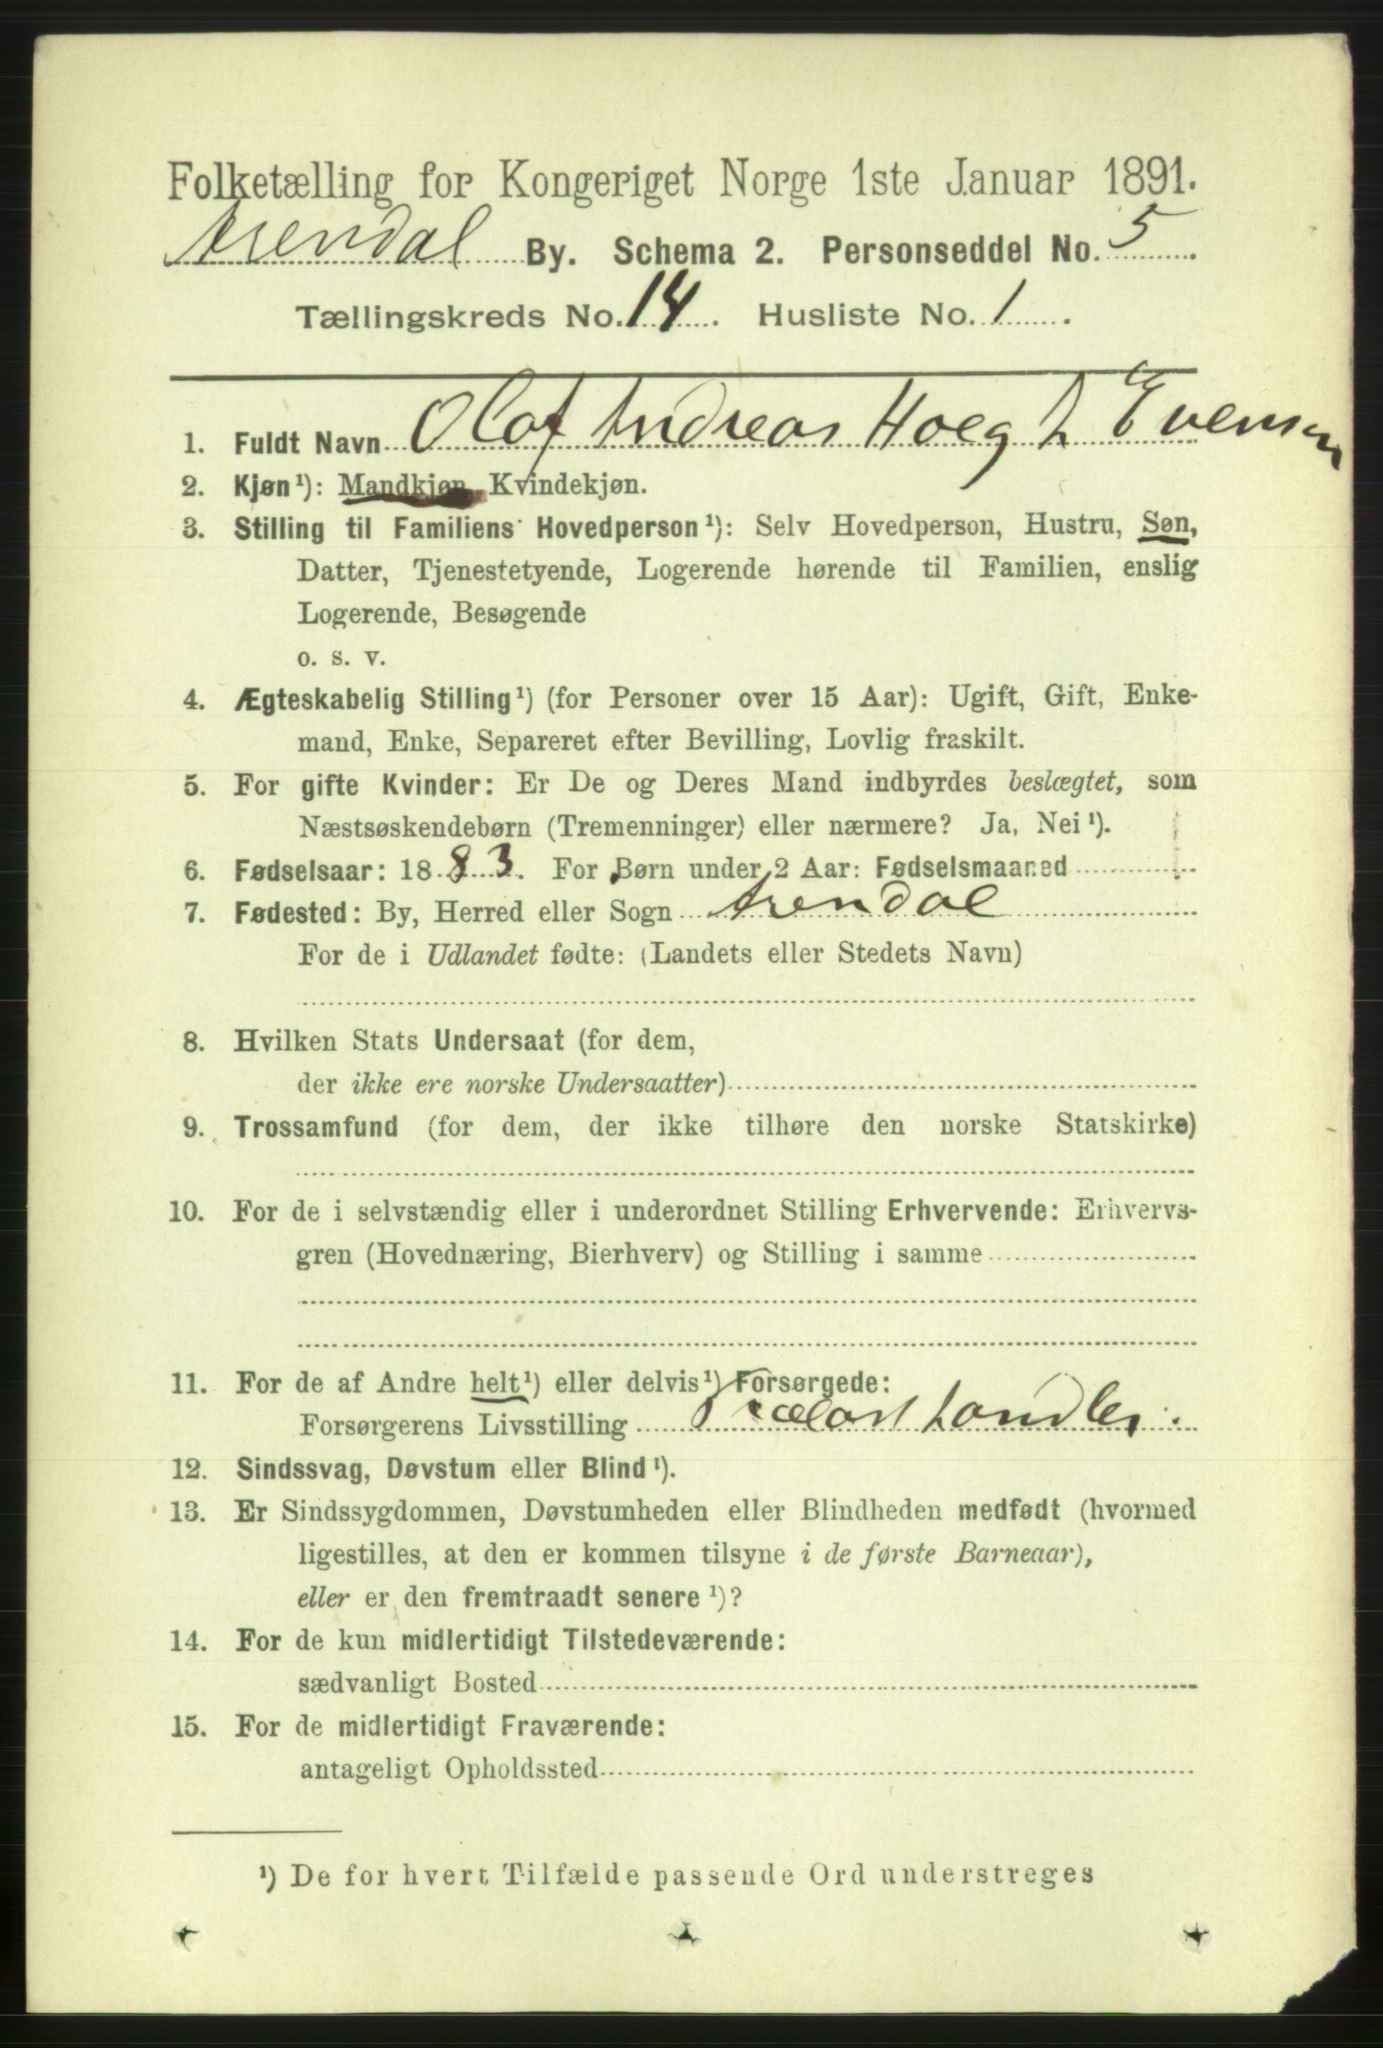 Folketælling for Kongeriget Norge 1ste Januar 1891.
Arendal By. Schema 2. Personseddel No. 5
Tællingskreds No. 14. Husliste No. 1.
1. Fuldt Navn Olaf Andreas Hoegh Evensen
2. Kjøn¹): Mandkjøn, Kvindekjøn.
3. Stilling til Familiens Hovedperson¹): Selv Hovedperson, Hustru, Søn,
Datter, Tjenestetyende, Logerende hørende til Familien, enslig
Logerende, Besøgende
o. s. v.
4. Ægteskabelig Stilling¹) (for Personer over 15 Aar): Ugift, Gift, Enke-
mand, Enke, Separeret efter Bevilling, Lovlig fraskilt.
5. For gifte Kvinder: Er De og Deres Mand indbyrdes beslægtet, som
Næstsøskendebørn (Tremenninger) eller nærmere? Ja, Nei¹).
6. Fødselsaar: 1883. For Børn under 2 Aar: Fødselsmaaned
7. Fødested: By, Herred eller Sogn Arendal
For de i Udlandet fødte: (Landets eller Stedets Navn)
8. Hvilken Stats Undersaat (for dem,
der ikke ere norske Undersaatter)
9. Trossamfund (for dem, der ikke tilhøre den norske Statskirke)
10. For de i selvstændig eller i underordnet Stilling Erhvervende: Erhvervs-
gren (Hovednæring, Bierhverv) og Stilling i samme
11. For de af Andre helt¹) eller delvis¹) Forsørgede:
Forsørgerens Livsstilling Trælasthandler.
12. Sindssvag, Døvstum eller Blind¹).
13. Er Sindssygdommen, Døvstumheden eller Blindheden medfødt (hvormed
ligestilles, at den er kommen tilsyne i de første Barneaar),
eller er den fremtraadt senere¹)?
14. For de kun midlertidigt Tilstedeværende:
sædvanligt Bosted
15. For de midlertidigt Fraværende:
antageligt Opholdssted
¹) De for hvert Tilfælde passende Ord understreges